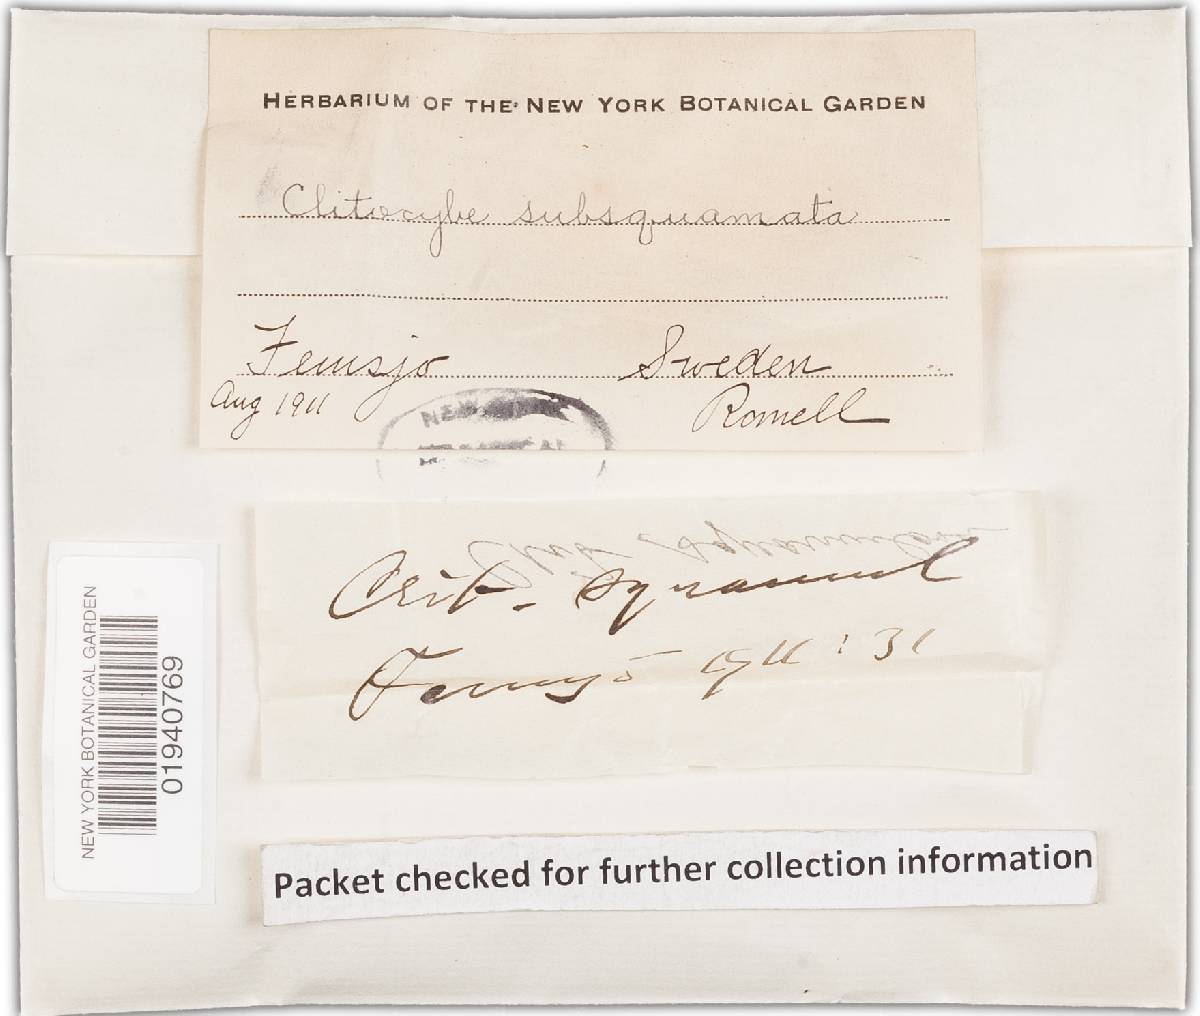 HERBARIUM OF THE NEW YORK BOTANICAL GARDEN
Clitocybe subsquamata
Femsjo Sweden
Aug 1911 Romell
NEW
Clit. squamul
Femsjö 1911: 31
NEW YORK BOTANICAL GARDEN
01940769
Packet checked for further collection information